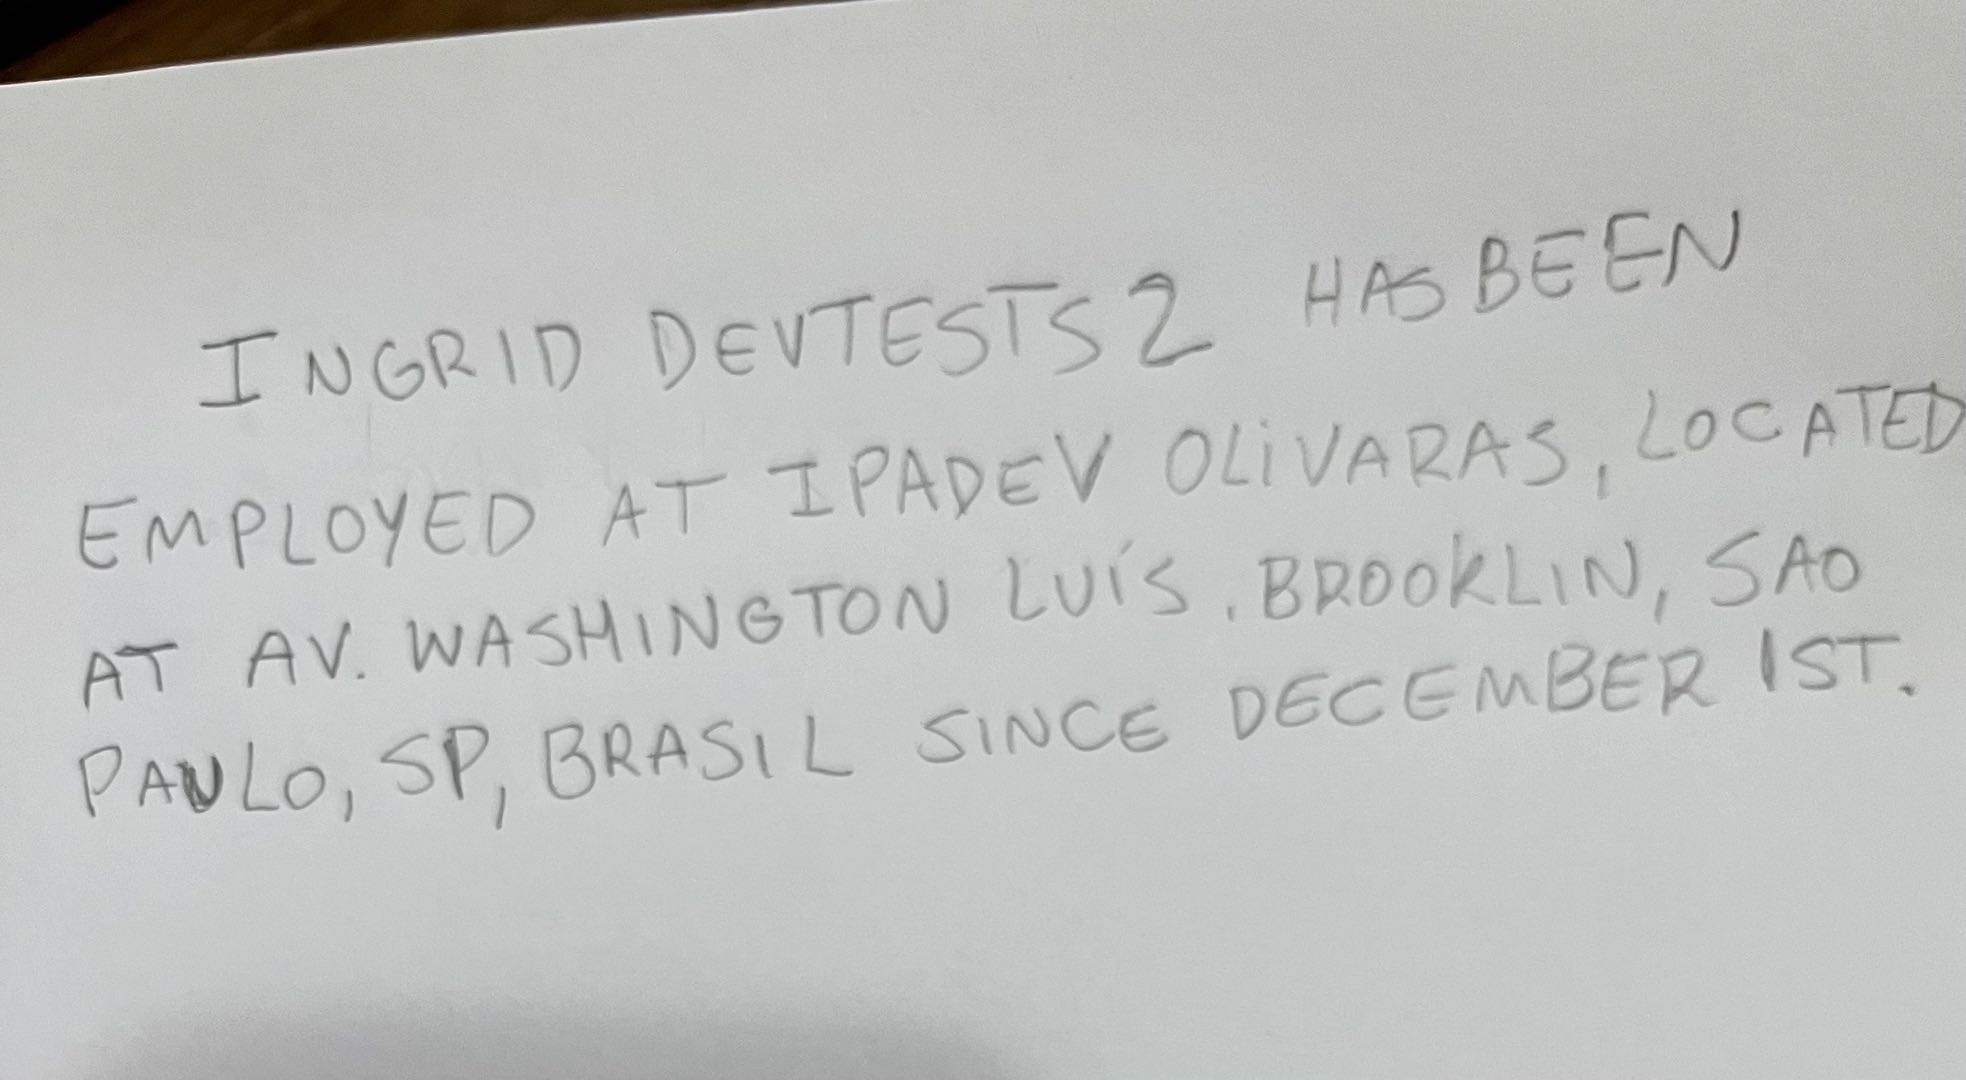 INGRID DEVTESTS2 HAS BEEN
EMPLOYED AT IPADEV OLIVARAS, LOCATED
AT AV. WASHINGTON LUÍS, BROOKLIN, SAO
PAULO, SP, BRASIL SINCE DECEMBER 1ST.